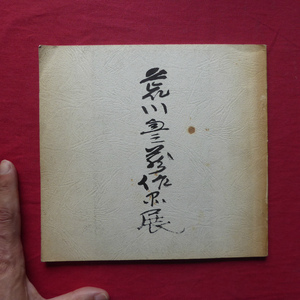 荒川豊蔵作品展